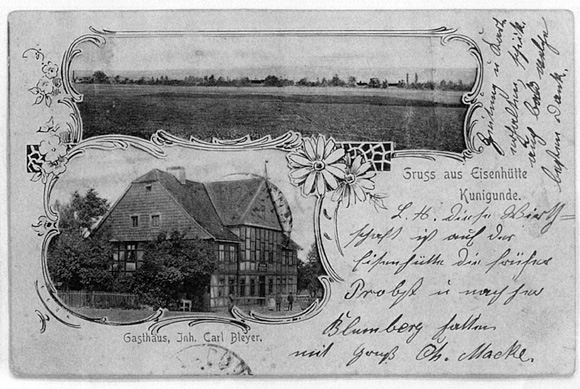 Gruss aus Eisenhütte
Kunigunde.
Gasthaus, Inh. Carl Bleyer.
L. H. Diese Wirt-
schaft ist auf der
Eisenhütte die früher
Probst u nachher
Blumberg hatten
mit Gruß Ch. Macke.
Zeitung u Karte
erhalten
besten Dank.